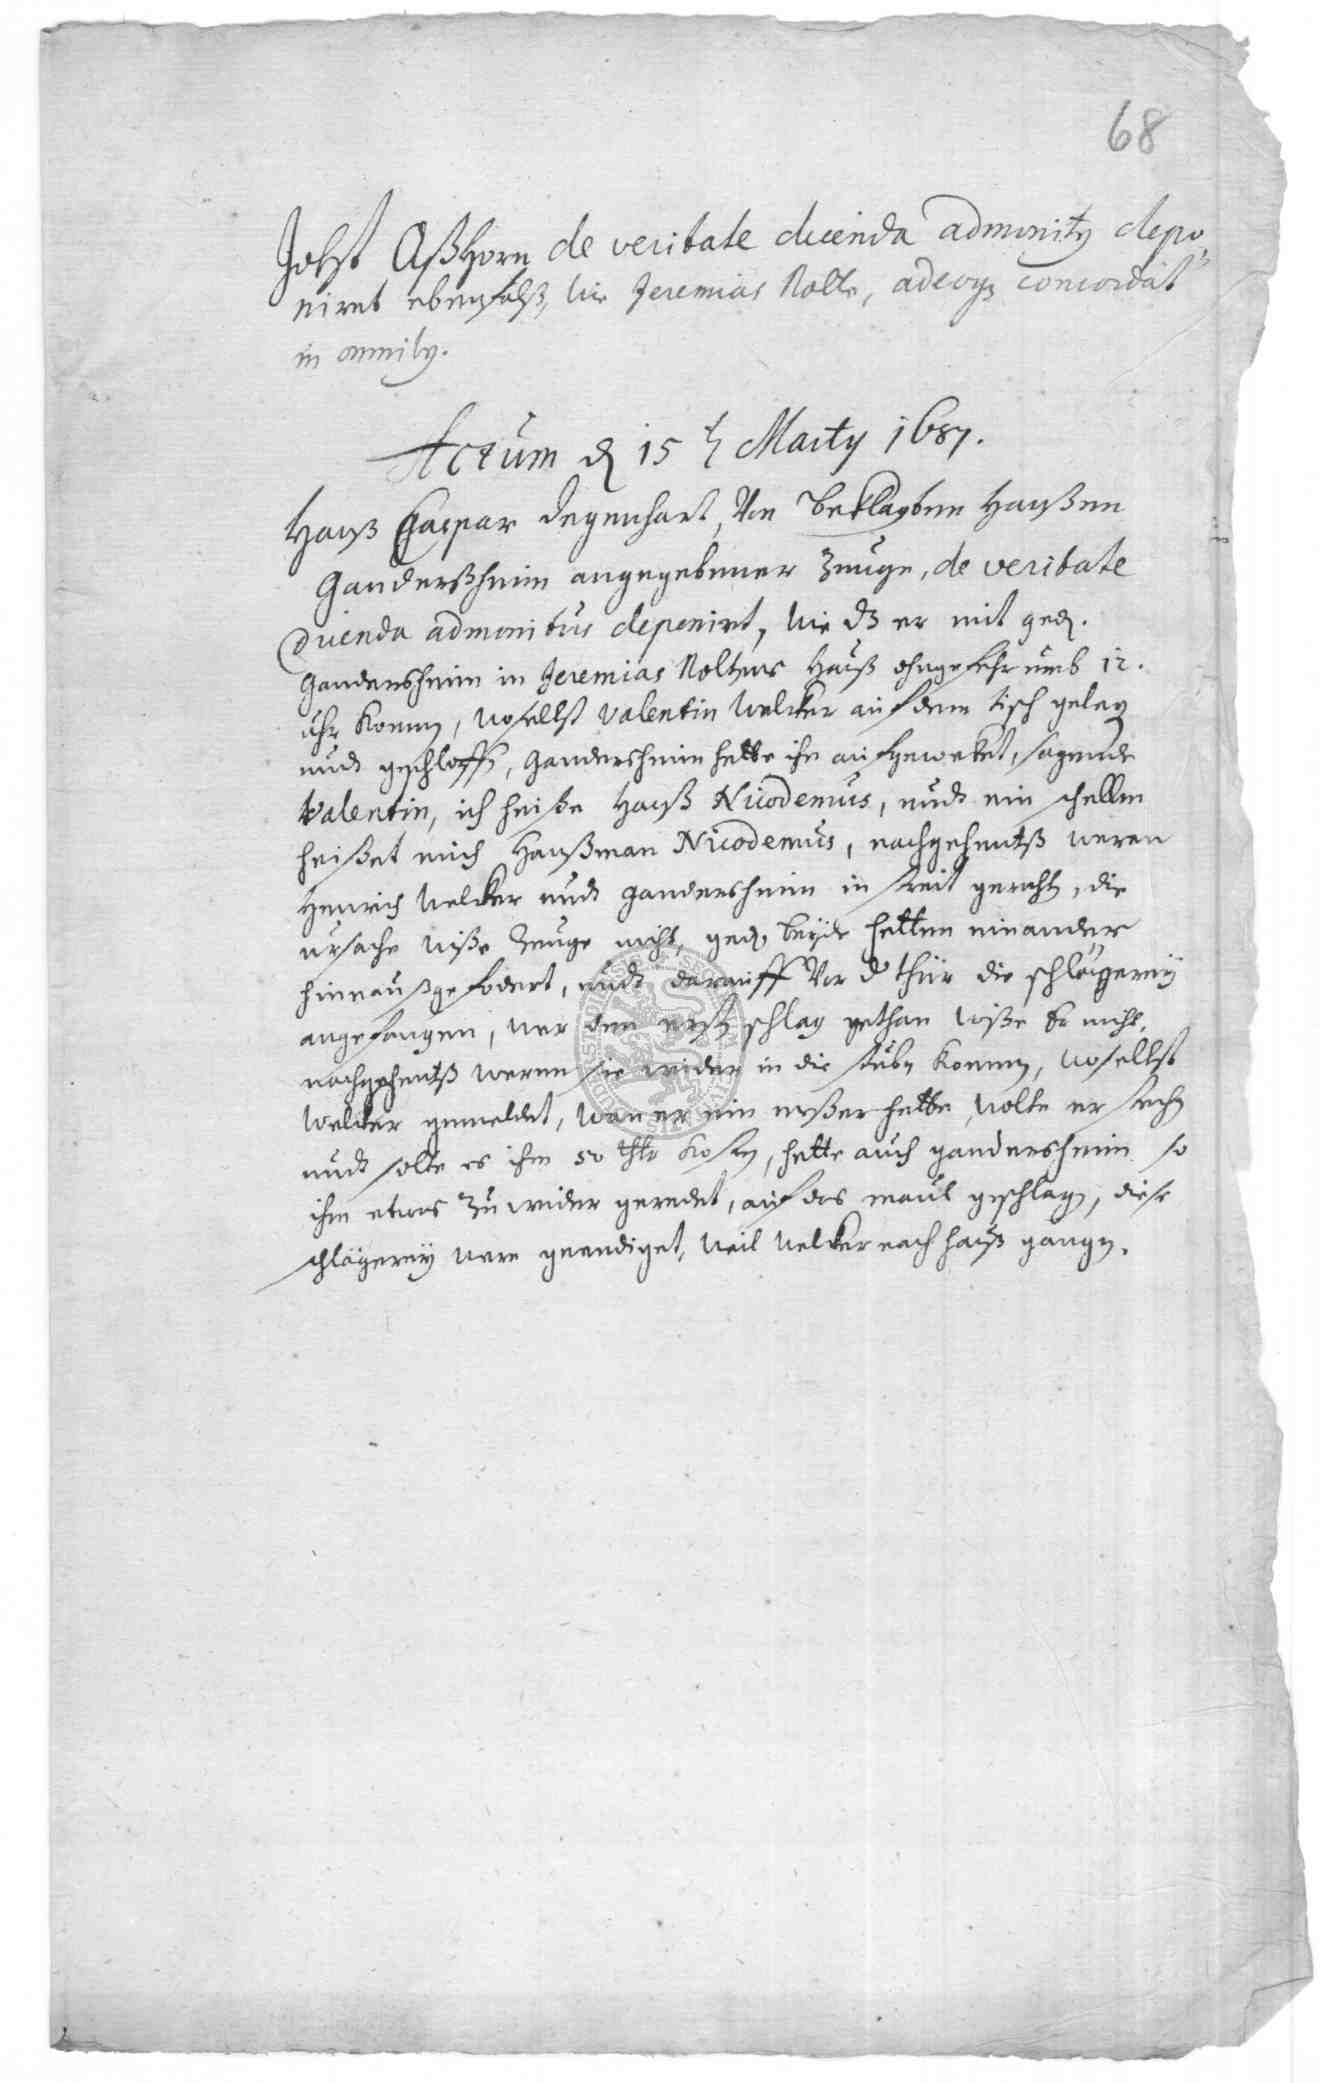 68
Jobst Aßhorn de veritate dicenda admonitg depo„
niret ebenfalß, wie Jeremias Nolte, adeoqz concordat
in omnibg.
Actum d 15 t Marty 1687.
Hanß Caspar Degenhart, Von Beklagtem Hanßen
Ganderßheim angegebener Zeuge, de veritate
dicenda admonitus deponirt, wie dz er mit ged.
Gandersheim in Jeremias Noltens Hauß ohngefehr umb 12.
uhr kommen, woselbst Valentin Welcker auf dem tisch gelegen
undt geschlaffen, Gandersheim hette ihn aufgewecket, sagende
Valentin, ich heiße Hanß Nicodemus, undt ein schellm
heißet mich Hanßman Nicodemus, nachgehentß weren
Henrich Welcker undt Gandersheim in streit gerahten, die
ursache wiße Zeuge nicht, ged. beyde hetten einander
hinnauß gefodert, undt darauff Vor d thür die schlägerey
angefangen, wer den ersten schlag gethan wiße Er nicht,
nachgehentß weren sie wider in die stube kommen, woselbst
Welcker gemeldet, wan er ein meßer hette, wolte er stechen
undt solte es ihm 50 thlr kosten, hette auch Gandersheim so
ihm etwas zu wider geredet, auf das maul geschlagen, diese
schlägerey were geendiget, weil Welcker nach hauß gangen.